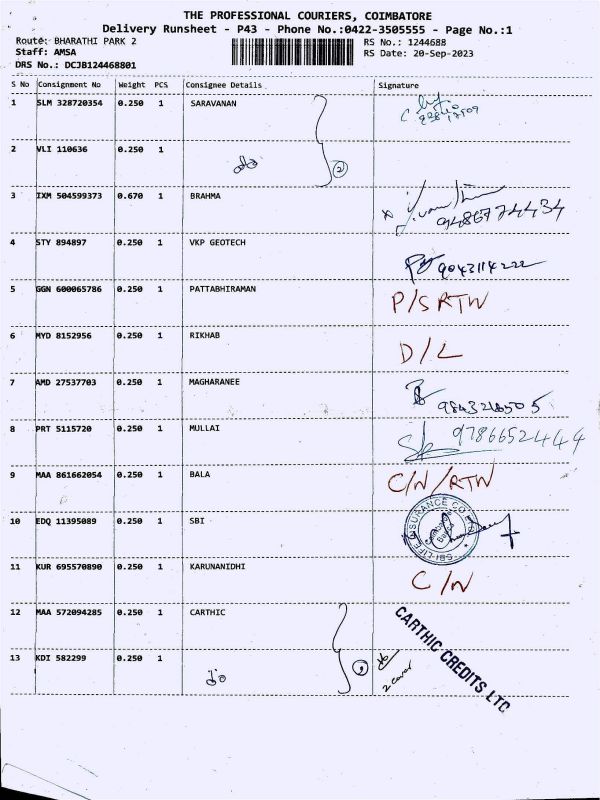 THE PROFESSIONAL COURIERS, COIMBATORE
Delivery Runsheet - P43 - Phone No.:0422-3505555 - Page No.:1
Route: BHARATHI PARK 2
RS No.: 1244688
Staff: AMSA
RS Date: 20-Sep-2023
DRS No.: DCJB124468801
S No Consignment No Weight PCS Consignee Details Signature
1 SLM 328720354 0.250 1 SARAVANAN
2 VLI 110636 0.250 1
2
3 IXM 504599373 0.670 1 BRAHMA
9486774434
4 STY 894897 0.250 1 VKP GEOTECH
9043114222
5 GGN 600065786 0.250 1 PATTABHIRAMAN P/S RTW
6 MYD 8152956 0.250 1 RIKHAB D/L
7 AMD 27537703 0.250 1 MAGHARANEE
8 PRT 5115720 0.250 1 MULLAI 9786652444
9 MAA 861662054 0.250 1 BALA C/N/RTW
10 EDQ 11395089 0.250 1 SBI
SBI LIFE INSURANCE CO. LTD
11 KUR 695570890 0.250 1 KARUNANIDHI C/N
12 MAA 572094285 0.250 1 CARTHIC
CARTHIC CREDITS LTC
13 KDI 582299 0.250 1
2 cover